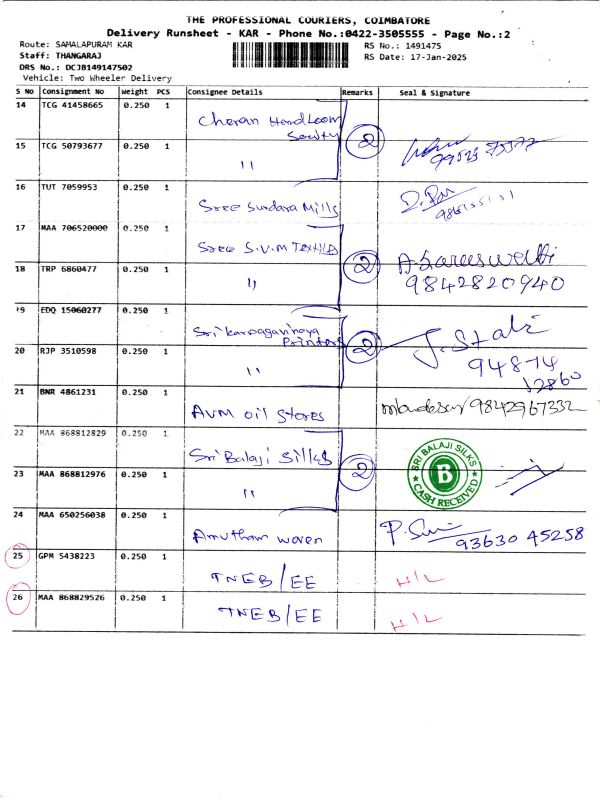 THE PROFESSIONAL COURIERS, COIMBATORE
Delivery Runsheet - KAR - Phone No.:0422-3505555 - Page No.:2
Route: SAMALAPURAM KAR RS No.: 1491475
Staff: THANGARAJ RS Date: 17-Jan-2025
DRS No.: DCJB149147502
Vehicle: Two Wheeler Delivery
S NO Consignment No Weight PCS Consignee Details Remarks Seal & Signature
14 TCG 41458665 0.250 1 Cheran HandLoom
Society 2
15 TCG 50793677 0.250 1 "
16 TUT 7059953 0.250 1 Sree Sundara Mills
17 MAA 706520000 0.250 1 Sree S.V.M Textiles 2 A. Saraswathi
18 TRP 6860477 0.250 1 " 9842820940
19 EDQ 15060277 0.250 1 Sri karpagavinaya
Printers 2 J. Stali
20 RJP 3510598 0.250 1 " 94874
12860
21 BNR 4861231 0.250 1 AVM oil Stores 9842967332
22 MAA 868812829 0.250 1 Sri Balaji Silks 2 SRI BALAJI SILKS
B
CASH RECEIVED
23 MAA 868812976 0.250 1 "
24 MAA 650256038 0.250 1 Amutham woven 93630 45258
25 GPM 5438223 0.250 1 TNEB/EE H/L
26 MAA 868829526 0.250 1 TNEB/EE H/L